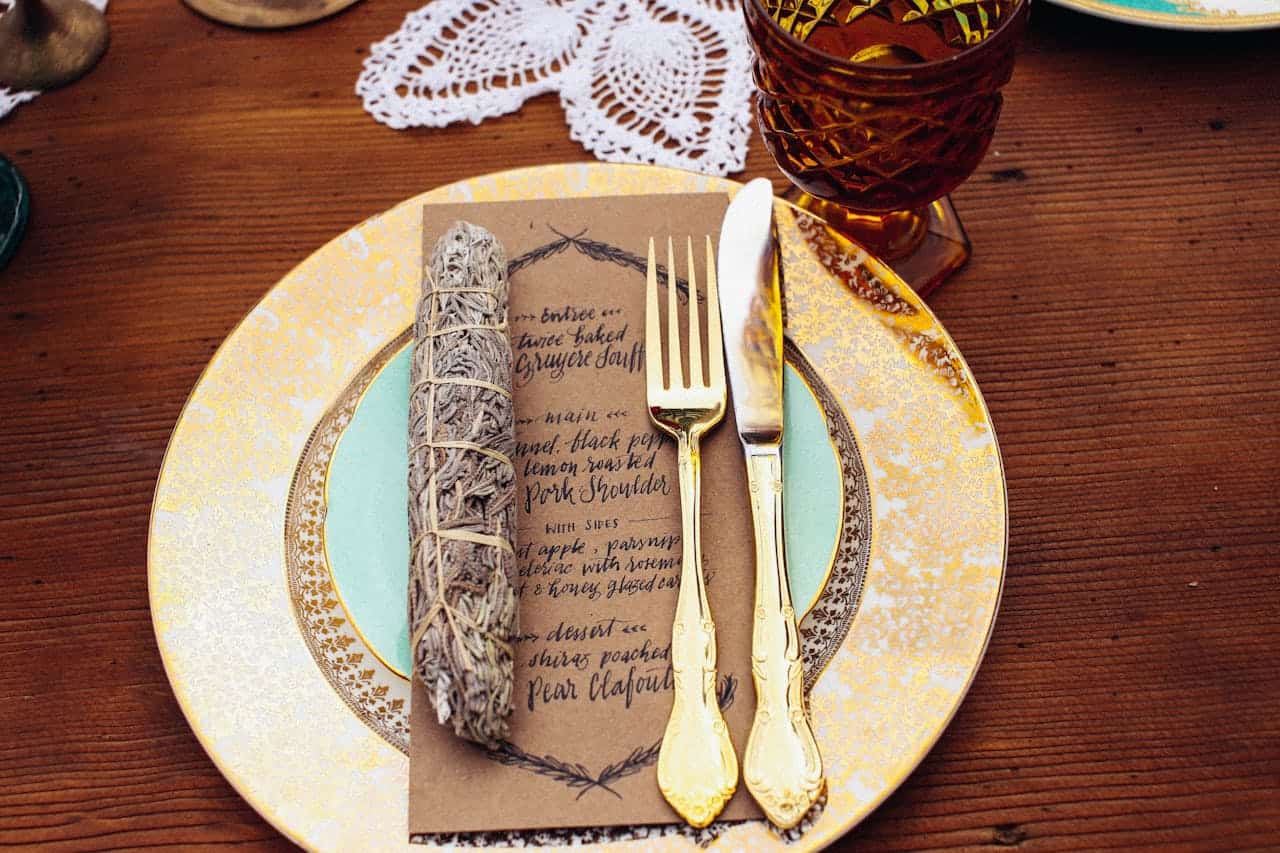 Entree
twice baked
Gruyere Souff
main
nnel, black pepp
lemon roasted
Pork Shoulder
WITH SIDES
t apple, parsnip
eleriac with rosema
t & honey glazed car
dessert
shiraz poached
Pear Clafout